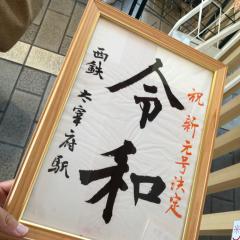 祝 新元号決定
令和
西鉄 太宰府駅